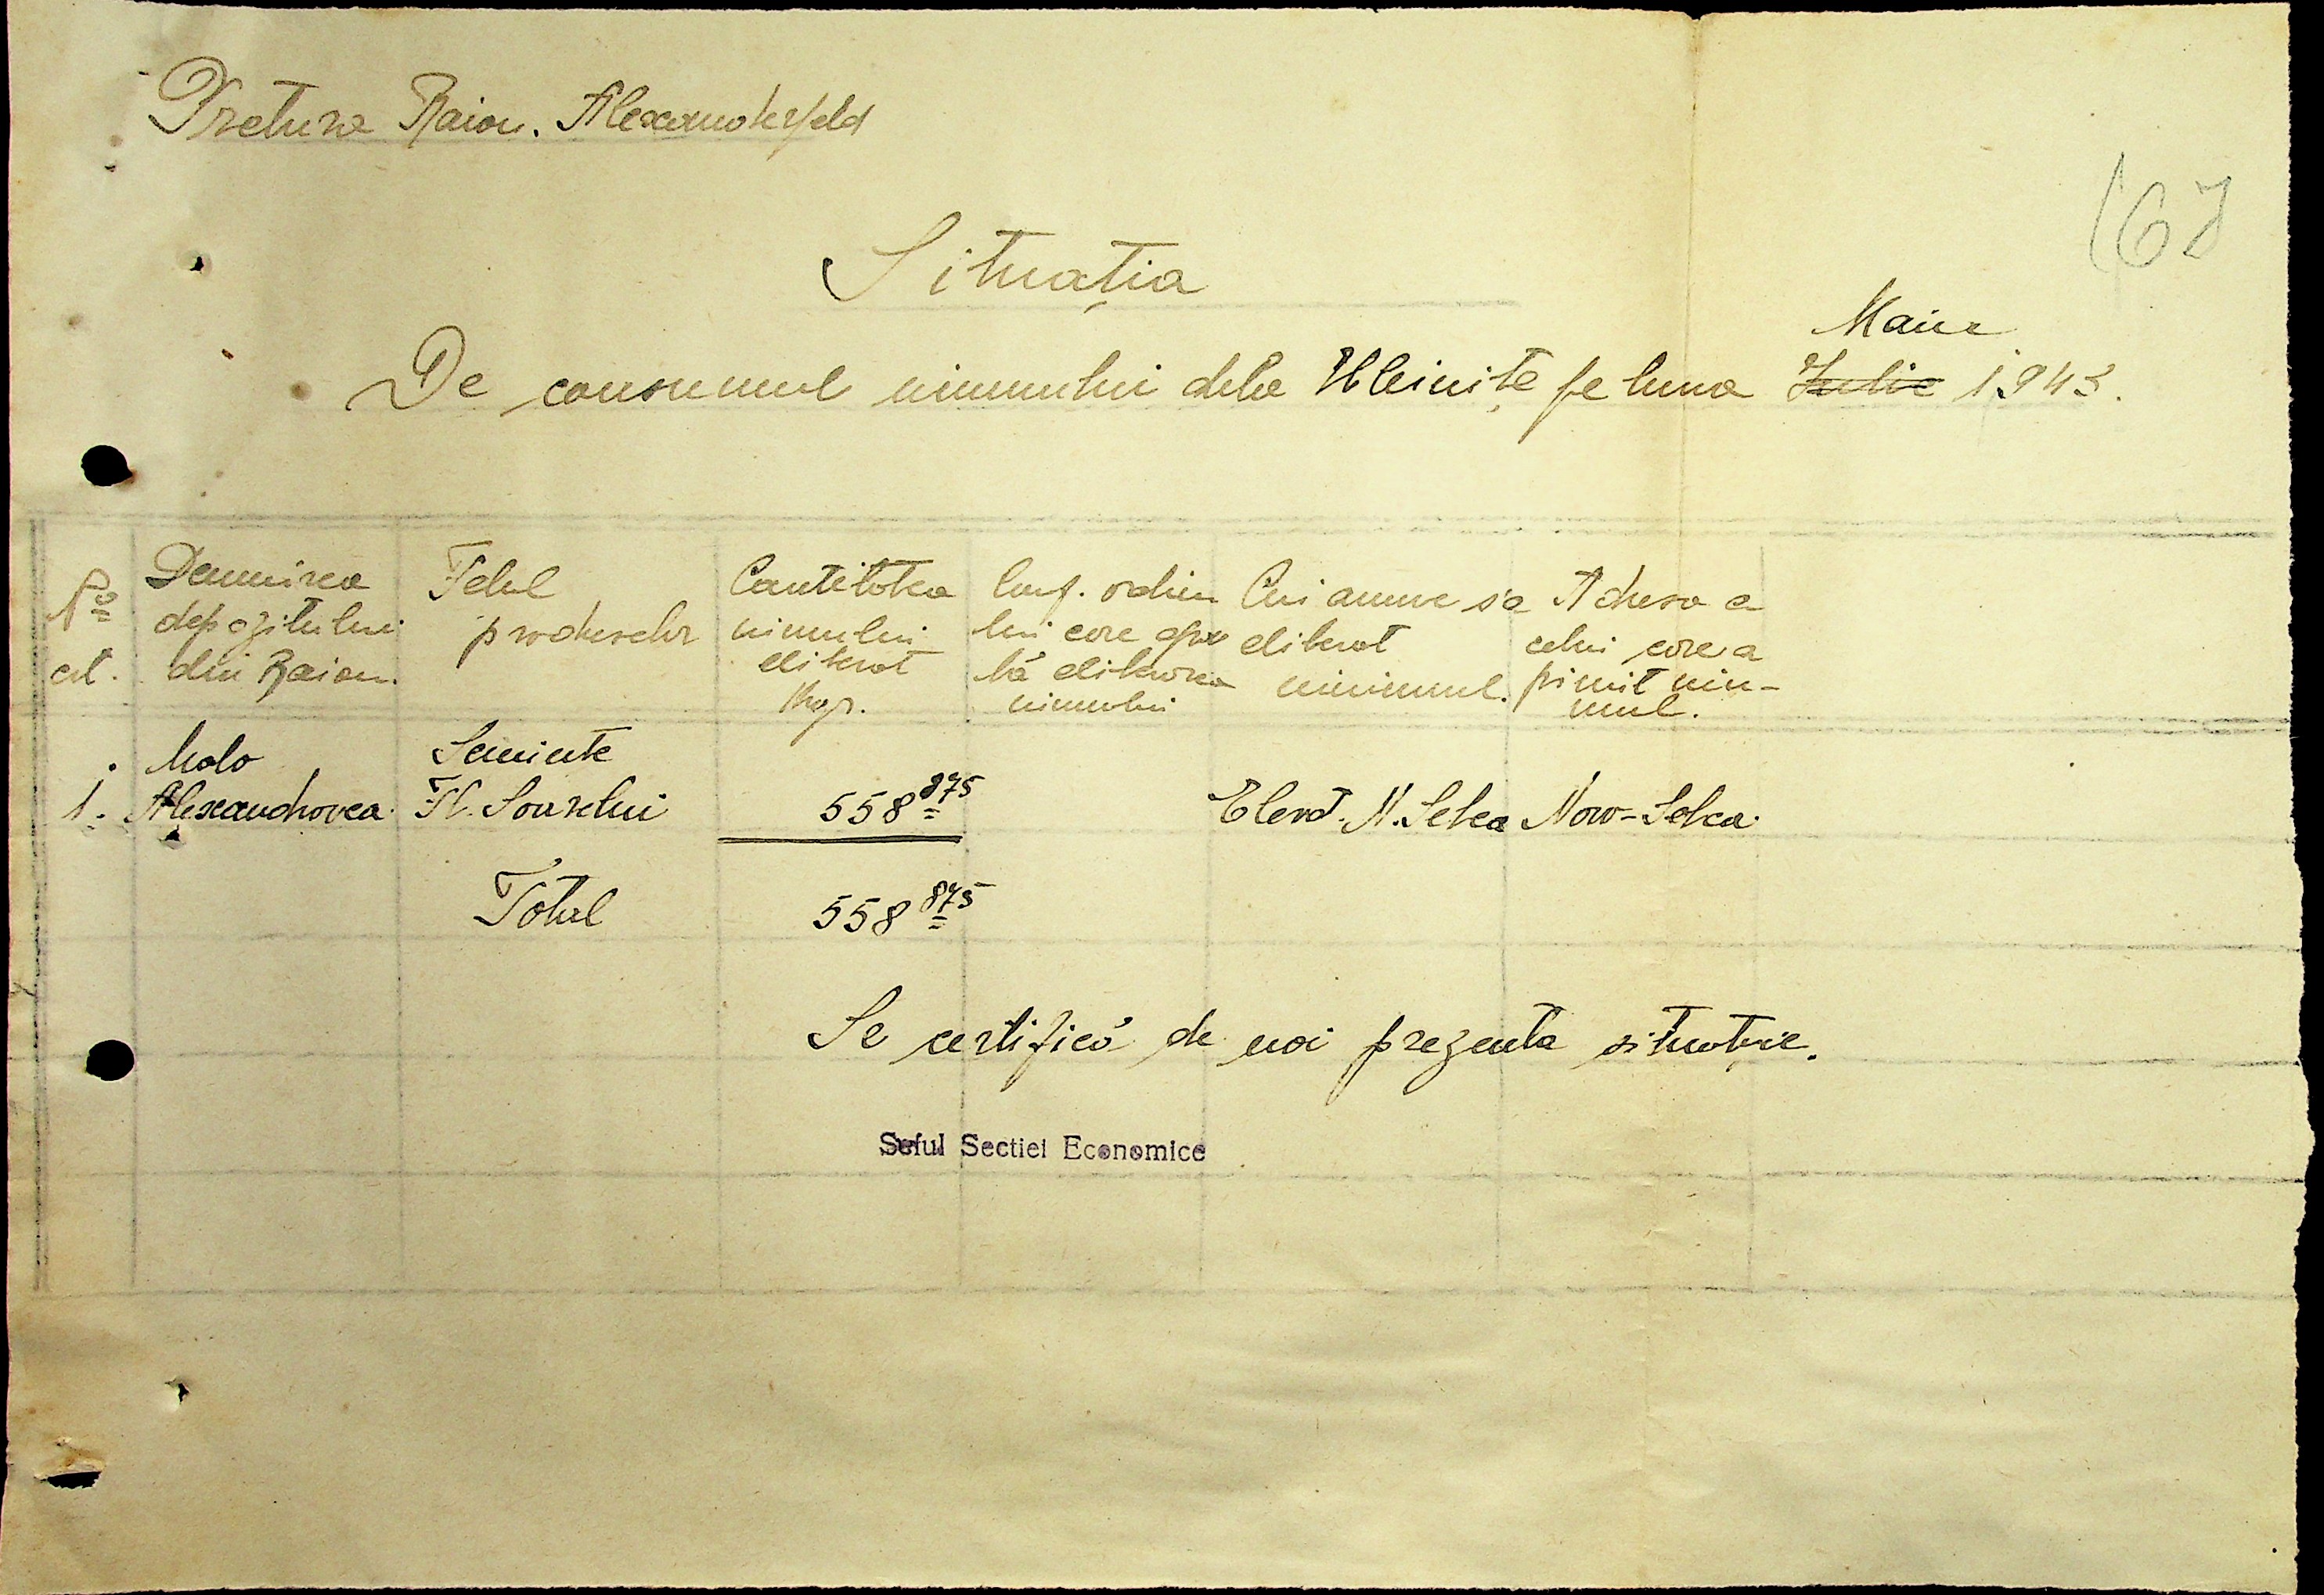 Pretura Raion. Alexanderfeld
167
Situația
Maiu
De consumul uiumului dela Uleinițe pe luna Iulie 1943.
No crt.
Denumirea depozitului din Raion.
Felul produselor
Cantitatea uiumului eliberat Kgr.
Conf. ordin lui care apro bă eliberarea uiumului
Cui anume s'a eliberat uiuimul.
Adresa a celui care a primit uiu- mul.
1. Malo Alexandrovca Seminte Fl. Soarelui 558 875 Elevat. N. Selca Now-Selca.
Total 558 875
Se certifică de noi prezenta situație.
Seful Sectiei Economice